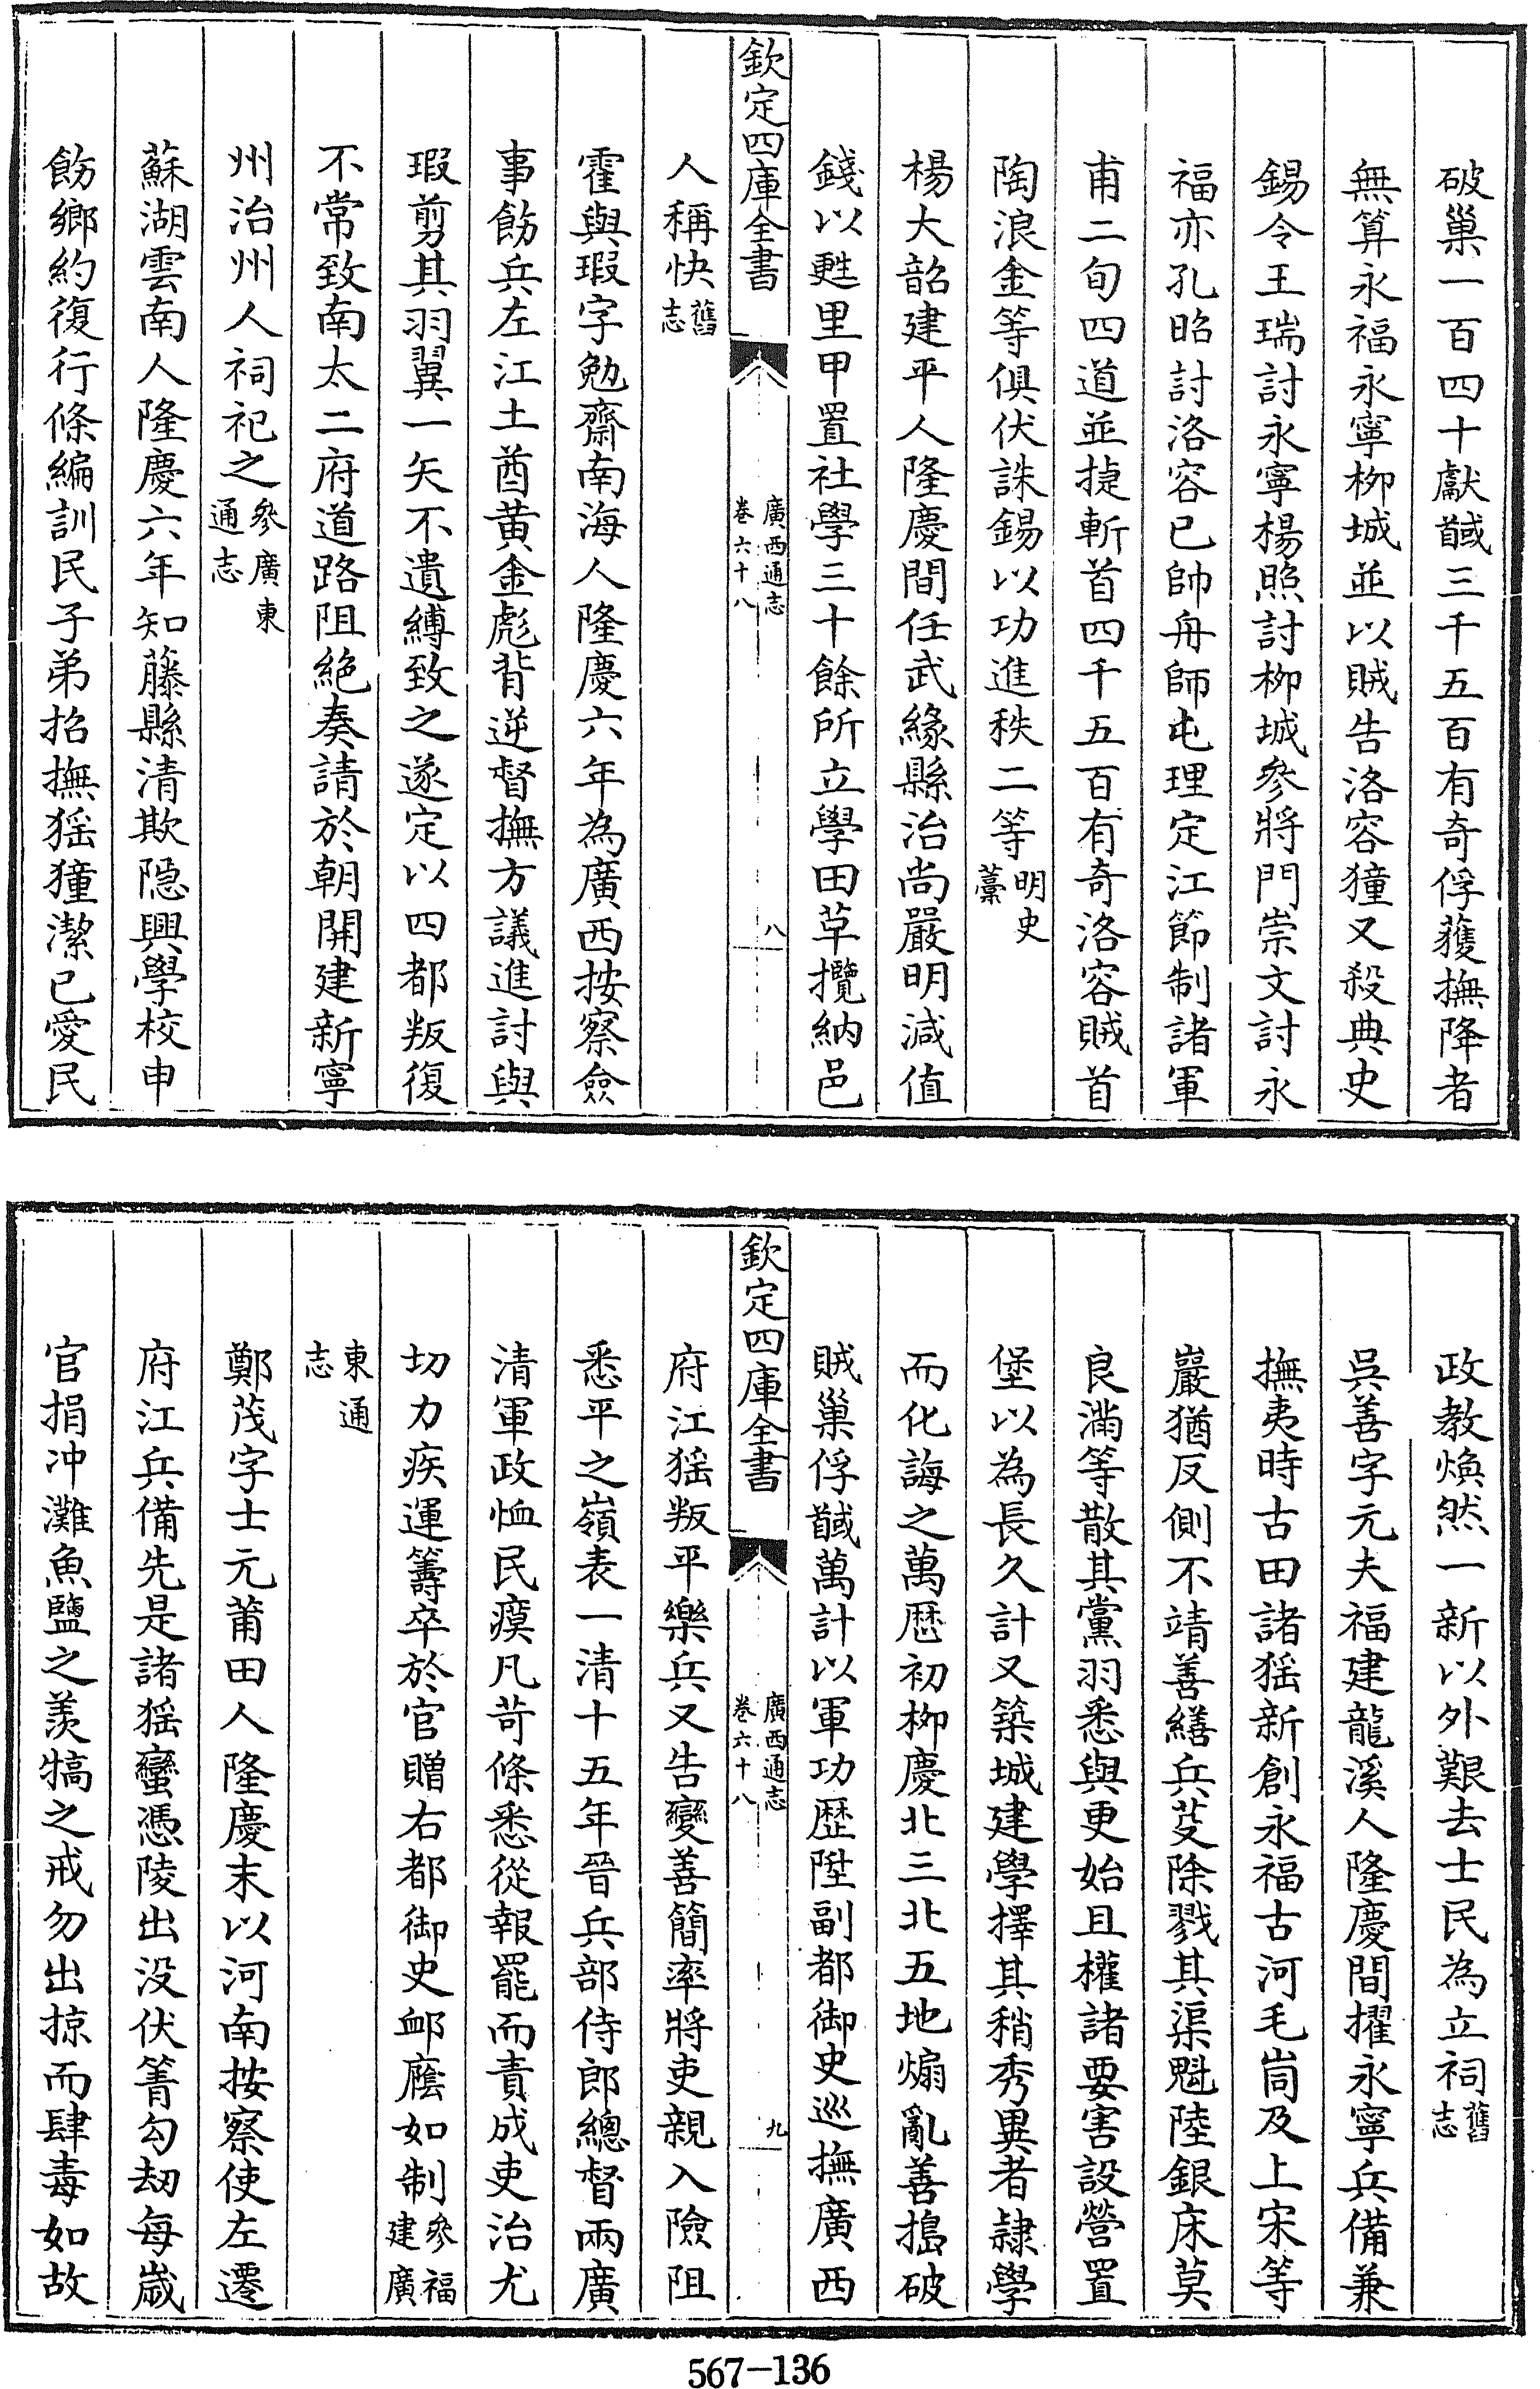 破巢一百四十獻馘三千五百有奇俘獲撫降者
無算永福永寧柳城並以賊告洛容獞又殺典史
錫令王瑞討永寧楊照討柳城參將門崇文討永
福亦孔昭討洛容已帥舟師屯理定江節制諸軍
甫二旬四道並捷斬首四千五百有奇洛容賊首
陶浪金等俱伏誅錫以功進秩二等明史藁
楊大韶建平人隆慶間任武緣縣治尚嚴明減值
錢以甦里甲置社學三十餘所立學田草攬納邑
欽定四庫全書
廣西通志
卷六十八
八
人稱快舊志
霍與瑕字勉齋南海人隆慶六年為廣西按察僉
事飭兵左江土酋黃金彪背逆督撫方議進討與
瑕剪其羽翼一矢不遺縛致之遂定以四都叛復
不常致南太二府道路阻絶奏請於朝開建新寧
州治州人祠祀之參廣東通志
蘇湖雲南人隆慶六年知藤縣清欺隠興學校申
飭鄉約復行條編訓民子弟招撫猺獞潔已愛民
政教煥然一新以外艱去士民為立祠舊志
吳善字元夫福建龍溪人隆慶間擢永寧兵備兼
撫夷時古田諸猺新創永福古河毛峝及上宋等
巖猶反側不靖善繕兵芟除戮其渠魁陸銀床莫
良滿等散其黨羽悉與更始且權諸要害設營置
堡以為長久計又築城建學擇其稍秀異者隷學
而化誨之萬歴初柳慶北三北五地煽亂善搗破
賊巢俘馘萬計以軍功歴陞副都御史巡撫廣西
欽定四庫全書
廣西通志
卷六十八
九
府江猺叛平樂兵又告變善簡率將吏親入險阻
悉平之嶺表一清十五年晉兵部侍郎總督兩廣
清軍政恤民瘼凡苛條悉從報罷而責成吏治尤
切力疾運籌卒於官贈右都御史䘏廕如制參福建廣
東通志
鄭茂字士元莆田人隆慶末以河南按察使左遷
府江兵備先是諸猺蠻憑陵出没伏箐勾刼每歲
官捐冲灘魚鹽之羨犒之戒勿出掠而肆毒如故
567-136